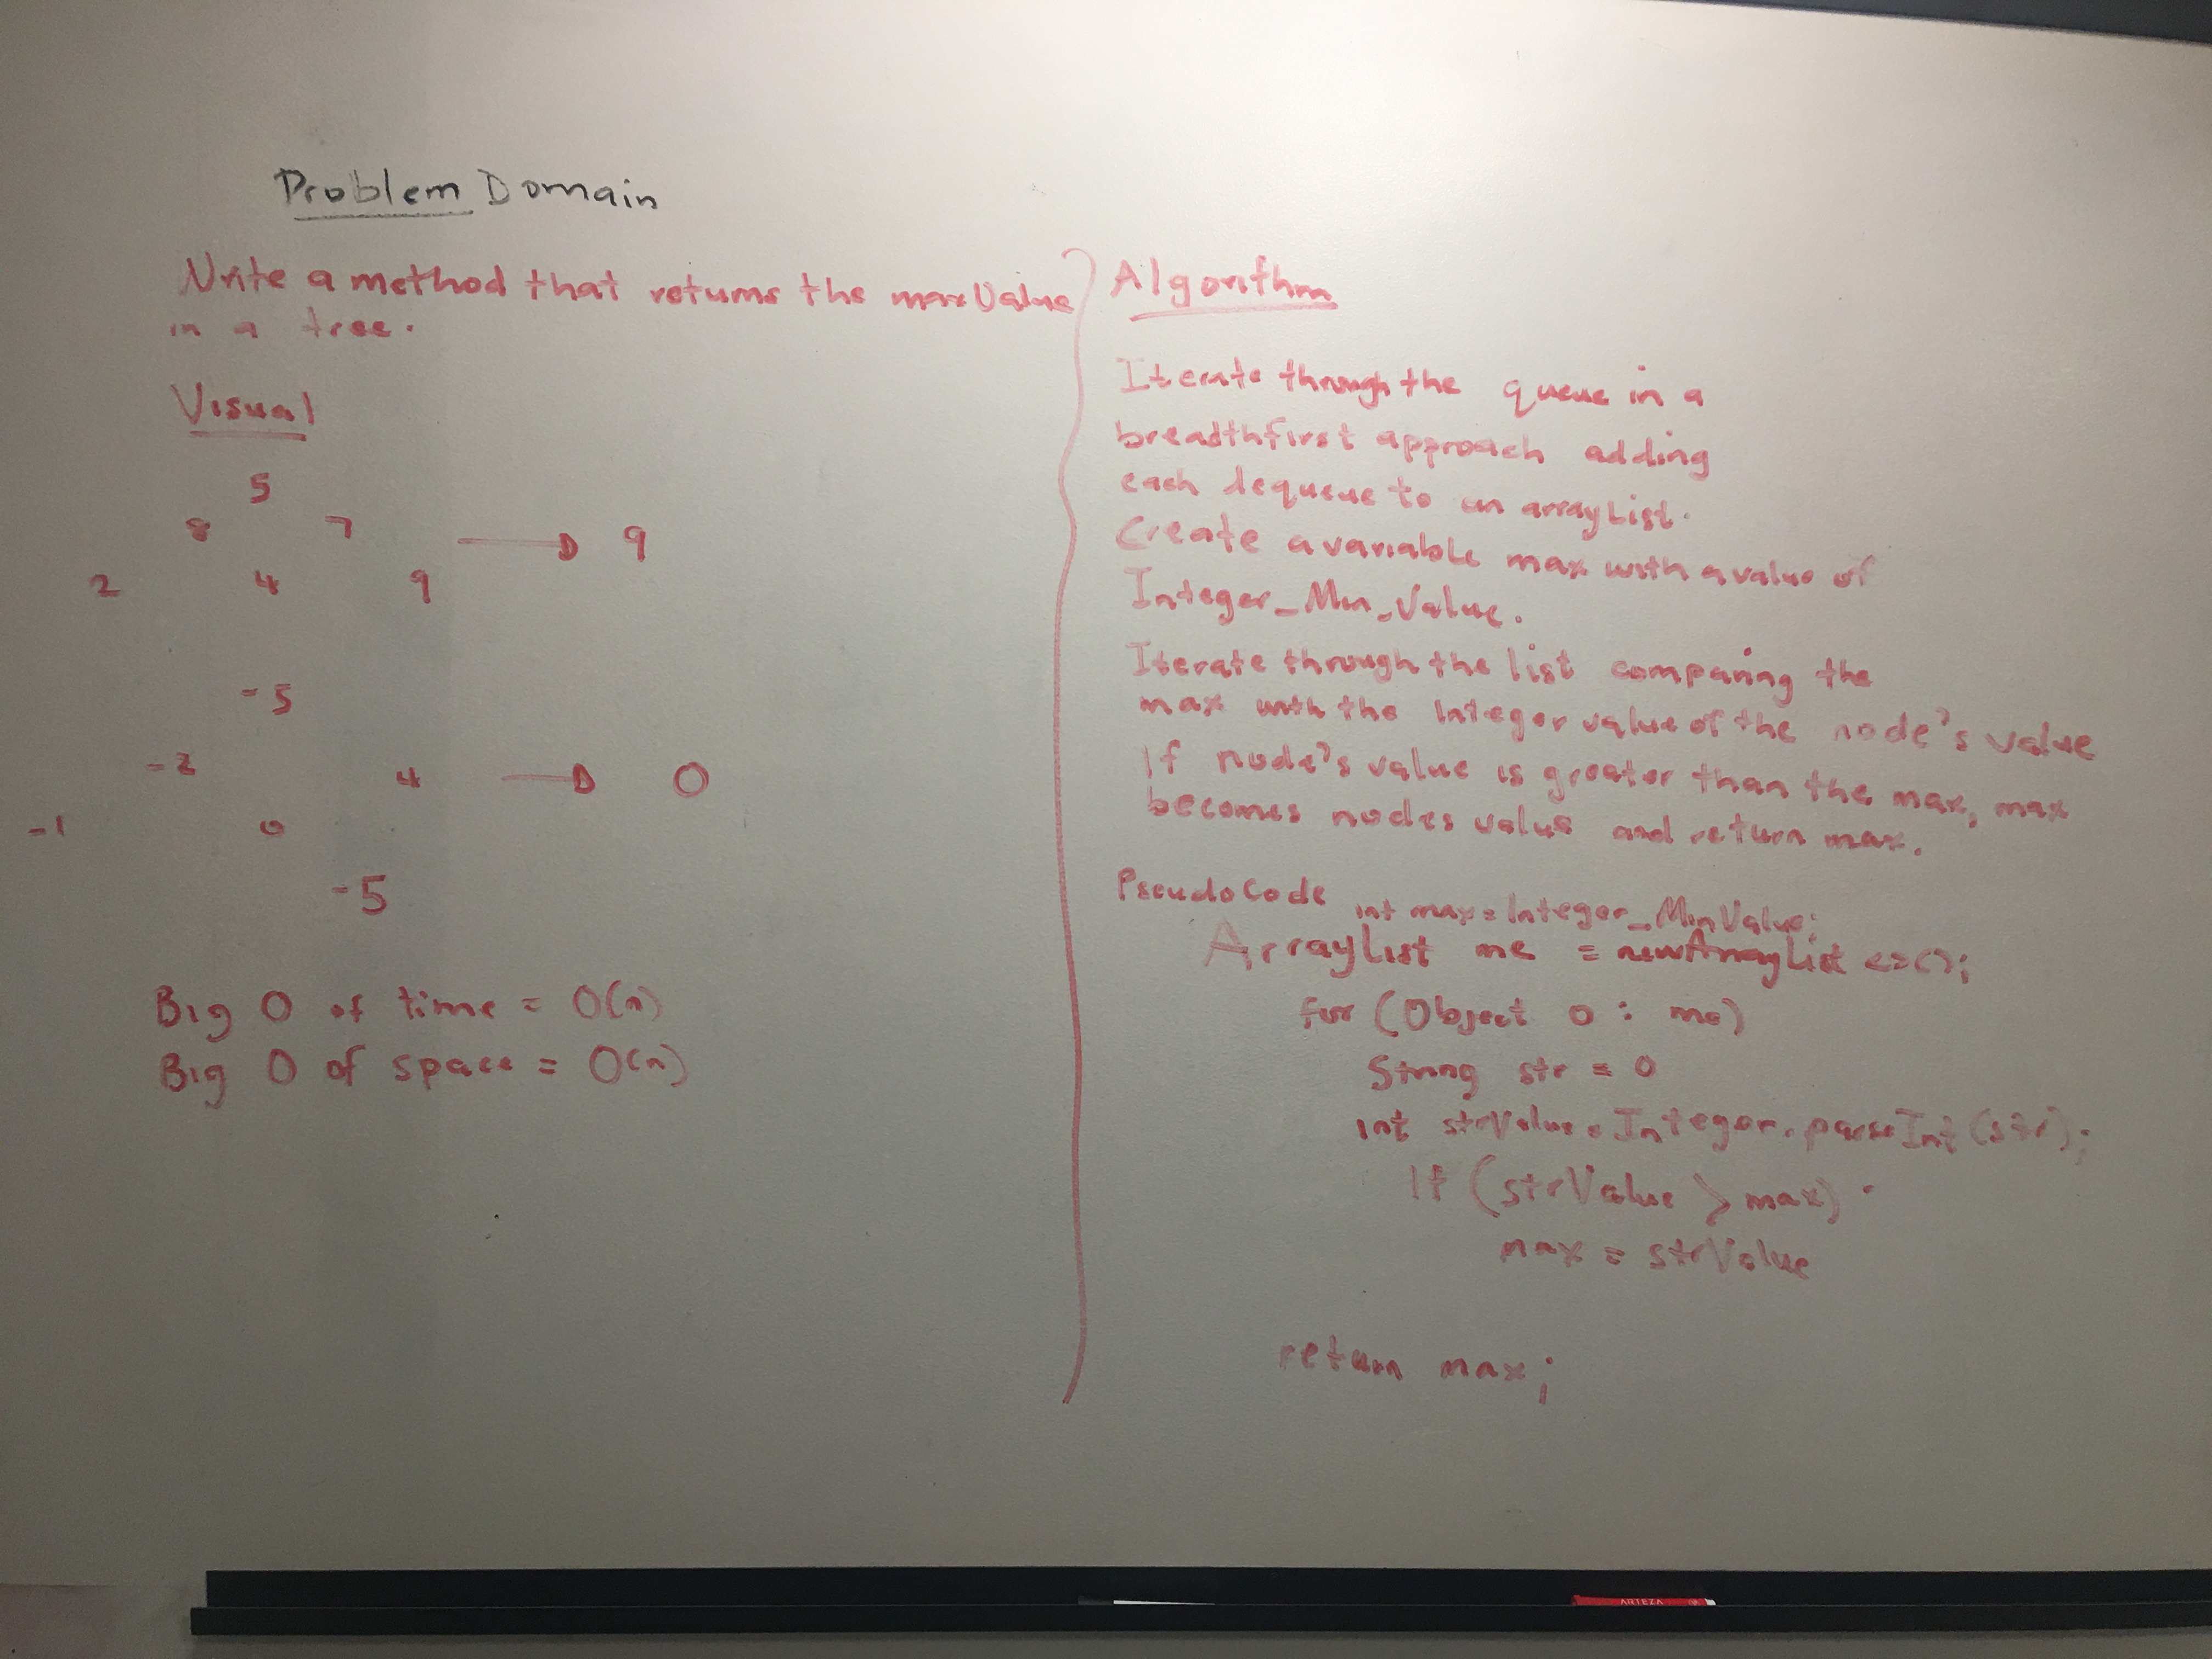 Problem Domain
Write a method that returns the maxValue
in a tree.
Visual
5
8 7 → 9
2 4 9
-5
-2 4 → 0
-1 0
-5
Big O of time = O(n)
Big O of space = O(n)
Algorithm
Iterate through the queue in a
breadthfirst approach adding
each dequeue to an arrayList.
Create a variable max with a value of
Integer_Min_Value.
Iterate through the list comparing the
max with the Integer value of the node's value
If node's value is greater than the max, max
becomes nodes value and return max.
PseudoCode
int max = Integer_MinValue;
ArrayList me = newArrayList<>();
for (Object o : me)
String str = o
int strValue = Integer.parseInt(str);
If (strValue > max)
max = strValue
return max;
ARTEZA